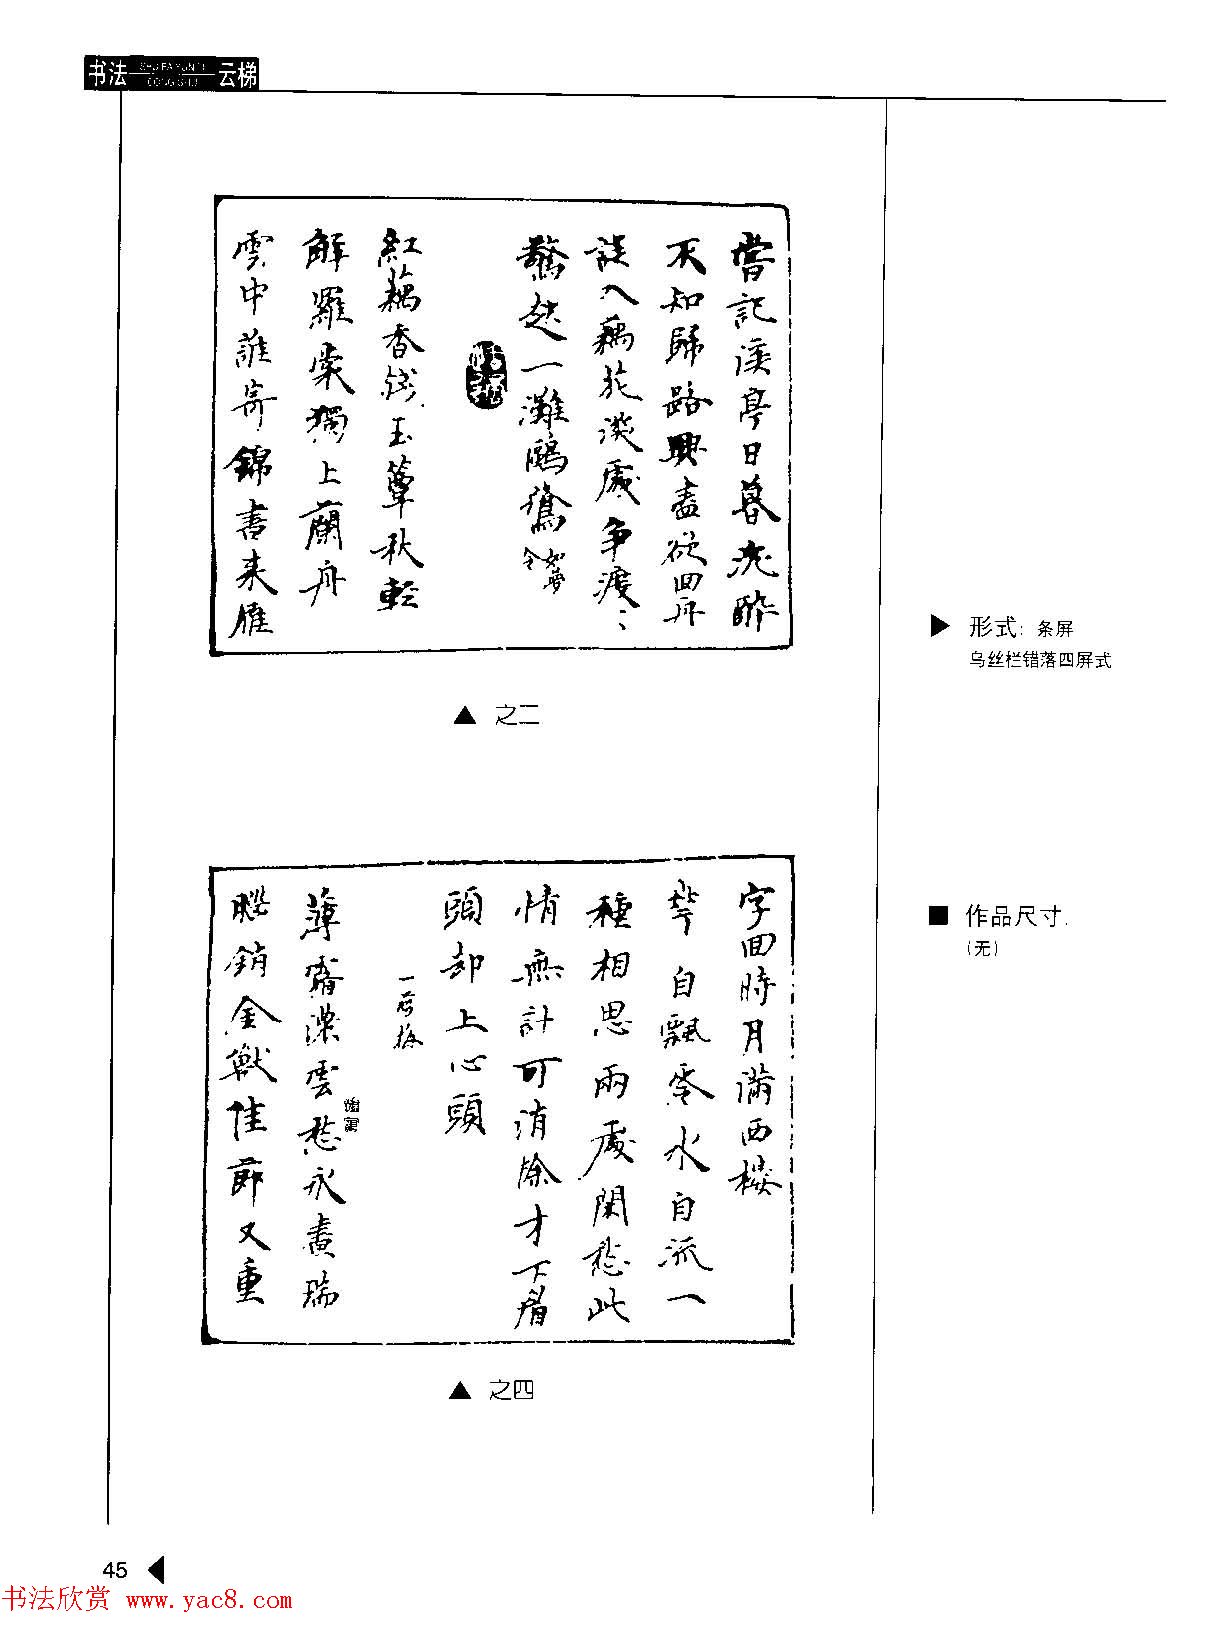 书法 云梯
SHU FA YUN TI
CONG SHU
嘗記溪亭日暮沈醉
不知歸路興盡欲回舟
誤入藕花深處爭渡〻
驚起一灘鷗鷺如夢令
紅藕香殘玉簟秋輕
解羅裳獨上蘭舟
雲中誰寄錦書来雁
▲ 之二
字回時月滿西樓
花自飄零水自流一
種相思兩處閑愁此
情無計可消除才下眉
頭却上心頭
一剪梅
薄霧濃雲愁永晝瑞
腦銷金獸佳節又重
▲ 之四
▶ 形式: 条屏
乌丝栏错落四屏式
■ 作品尺寸:
(无)
45 ◀
书法欣赏 www.yac8.com